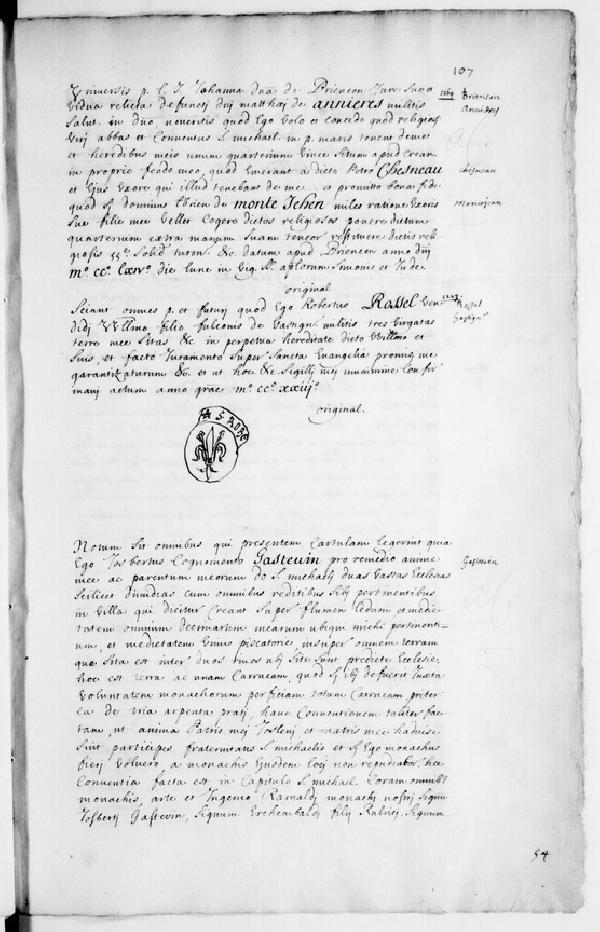 107
Universis p. l. J. Johanna dna de Briencon Jure suo
vidua relicta defuncti dnj matthej de annieres militis
salut. in dno noveritis quod Ego volo et concedo quod religiosj
virj abbas et Conventus S. michael. in p. maris tenent deme
et heredibus meis unum quarterium vinee situm apud Crean.
in proprio feodo meo, quod emerant a dicto Petro Chesneau
et Ejus uxore qui illud tenebant de me et promitto bona fide
quod sj dominus de monte Jehen miles ratione uxoris
sue filie mee vellet Cogere dictos religiosos ponere dictum
quarterium extra manum suam teneor restituere dictis reli
giosis solid. turon. &c. datum apud Briencon anno dnj
mo. cco. lxvo. die lune in vig. St. aplorum Simonis et Jude.
original
Briencon
Annieres
chesneau
montejean
Sciant omnes p. et futurj quod Ego Robertus Rossel ven
didj Willmo filio fulconis de militis tres virgatas
terre mee sitas &c. in perpetua hereditate dicto Willmo et
suis et facto Juramento super sancta Evangelia promisj me
garantizaturum &c. et ut hoc &c. sigillj mej munimine Confir
mavj actum anno grac. mo. cco. xxiijo.
original.
Rossel
Notum sit omnibus qui presentem Cartulam legerint quia
Ego Josbertus Cognomento Gasteuin pro remedio anime
mee ac parentum meorum do S. michaelj duas vastas Ecclesias
scilicet dimidias cum omnibus reditibus sibj pertinentibus
in villa qui dicitur Creant super flumen ledum et medie
tatem omnium decimarum mearum ubique michi pertinenti
um, et medietatem unius piscatorie, insuper omnem terram
que sita est inter duos rivos ubj site sunt predicte Ecclesie,
hoc est terra ac unam Carrucam, quod sj ibj defuerit Juxta
voluntatem monachorum perficiam totam Carrucam preter
ea do tria arpenta pratj, hanc Conventionem taliter fac
tam, ut anima Patris mej Joslenj et matris mee haduise
sint participes fraternitatis S. michaelis et sj Ego monachus
fierj voluero a monachis Ejusdem locj non repudeabor, hec
Conventio facta est in Capitulo S. michael. Coram omnibus
monachis, arte et Ingenio Rainaldj monachj nostrj signum
Josbertj Gastevin, signum Erchembaldj filij Ruhrej, signum
Gasteuin
54